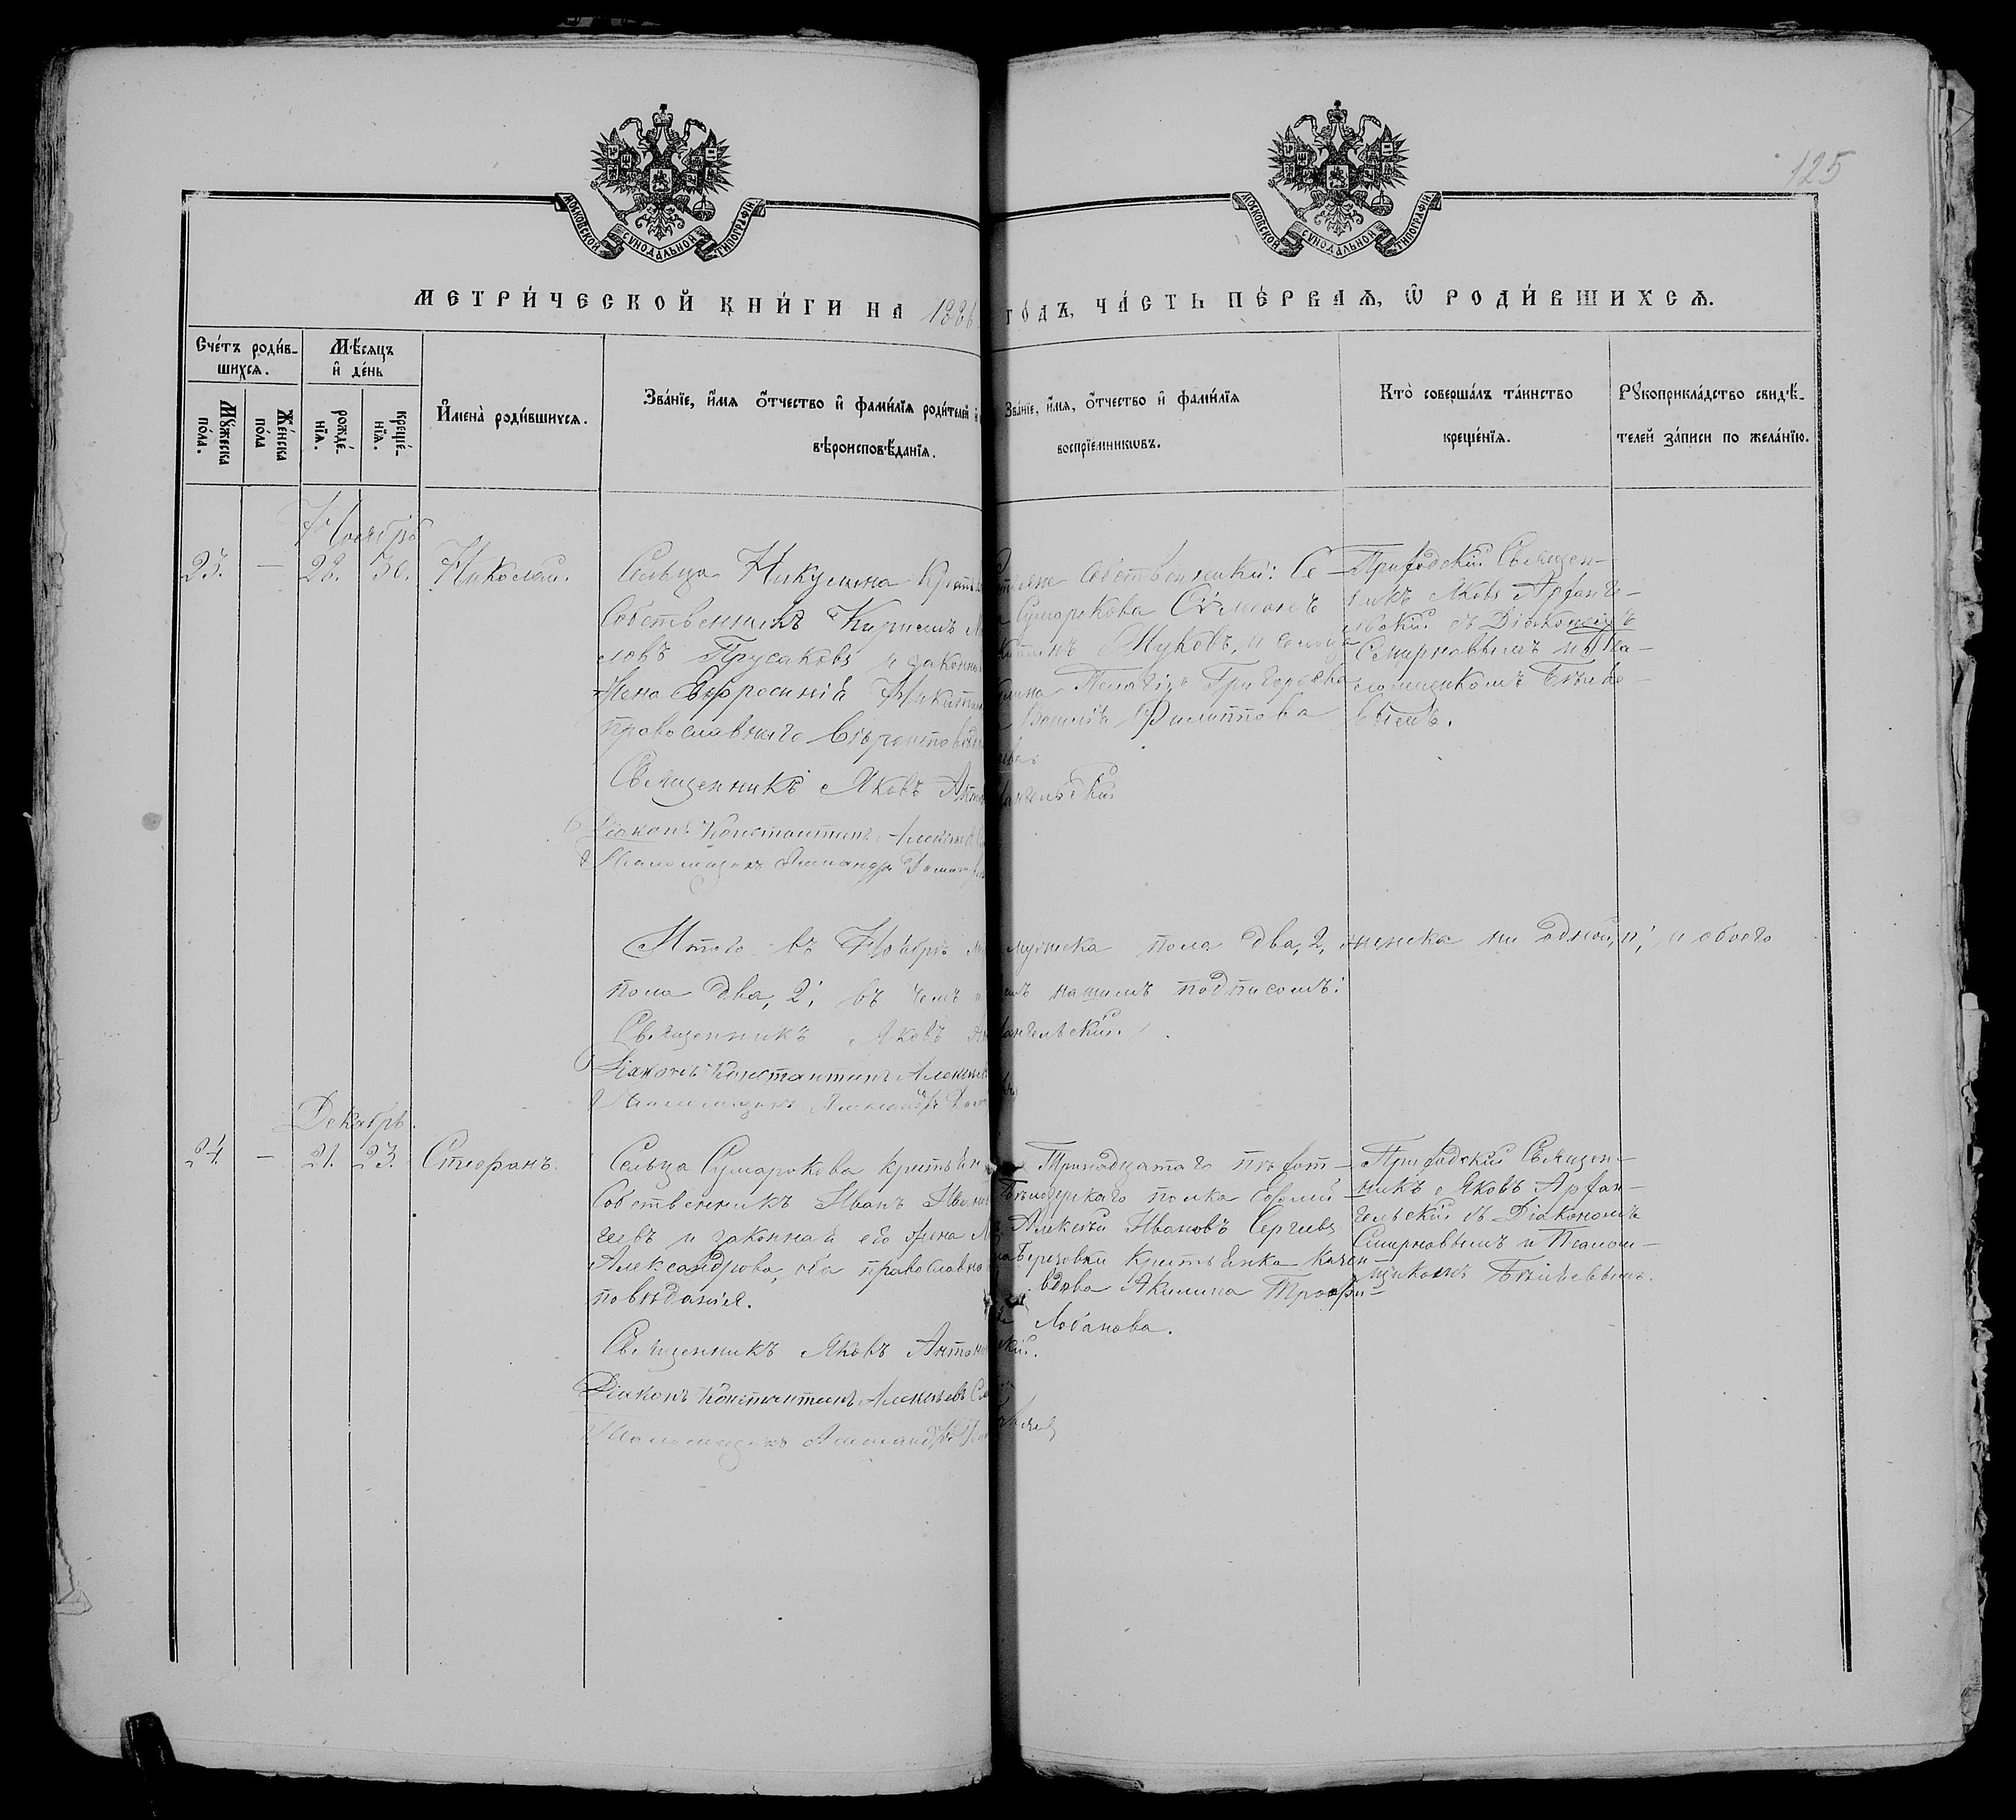 125
МОСКОВСКОЙ СУНОДАЛЬНОЙ ТИПОГРАФІИ.
МОСКОВСКОЙ СУНОДАЛЬНОЙ ТИПОГРАФІИ.
МЕТРИ́ЧЕСКОЙ КНИ́ГИ НА 1886
ГО́ДЪ, ЧА́СТЬ ПЕ́РВАѦ, Ѿ РОДИ́ВШИХСѦ.
Сче́тъ роди́в-
шихсѧ.
Мꙋжеска
по́ла.
Же́нска
по́ла
Мѣ́сѧцъ
и҆ де́нь
рожде́-
нїѧ.
креще́-
нїѧ.
И҆мена̀ роди́вшихсѧ.
Зва́нїе, и҆мѧ ѻ҆тчество и҆ фами́лїѧ роди́телей и҆
вѣроисповѣ́данїѧ.
Зва́нїе, и҆мѧ, ѻ҆тчество и҆ фами́лїѧ
воспрїе́мникѡвъ.
Кто̀ соверша́лъ та́инство
креще́нїѧ.
Рꙋкоприкла́дство свидѣ́-
телей за́писи по жела́нїю.
Ноябрь
23. — 28. 30. Николай.
Сельца Никулина
Собственникъ Кирилъ
ловъ Прусаковъ и законна
жена Евфросинія Никити
православнаго
Священникъ Яковъ
Діаконъ Константинъ
Псаломщикъ
собственники: Се
Сумарокова Сѵмеонъ
Жуковъ, и сельца
Пелагія Григорьева
Филиппова
Приходскій Священ-
никъ Яковъ Арханге-
льскій съ Діакономъ
Смирновымъ и Пса-
ломщикомъ Бѣляе-
вымъ.
Итого въ Ноябрѣ
мужска пола два, 2, женска ни одной, и обоего
пола два, 2; въ чемъ
нашимъ подписомъ:
Священникъ Яковъ
Архангельскій.
Діаконъ Константинъ
Псаломщикъ Александръ
Декабрь.
24. — 21. 23. Стефанъ.
Сельца Сумарокова крестьян
Собственникъ Иванъ
геевъ и законная его жена
Александрова, оба православно
повѣданія.
Священникъ Яковъ Антон
Діаконъ Константинъ Алексѣевъ
Псаломщикъ Александръ
Тринадцатаго пѣхот-
Бѣлозерскаго полка
Алексѣй Ивановъ Сергѣевъ
Березовки Крестьянка
вдова Акилина Трофи-
Лобанова.
Приходскій Священ-
никъ Яковъ Архан-
гельскій съ Діакономъ
Смирновымъ и Псалом-
щикомъ Бѣляевымъ.